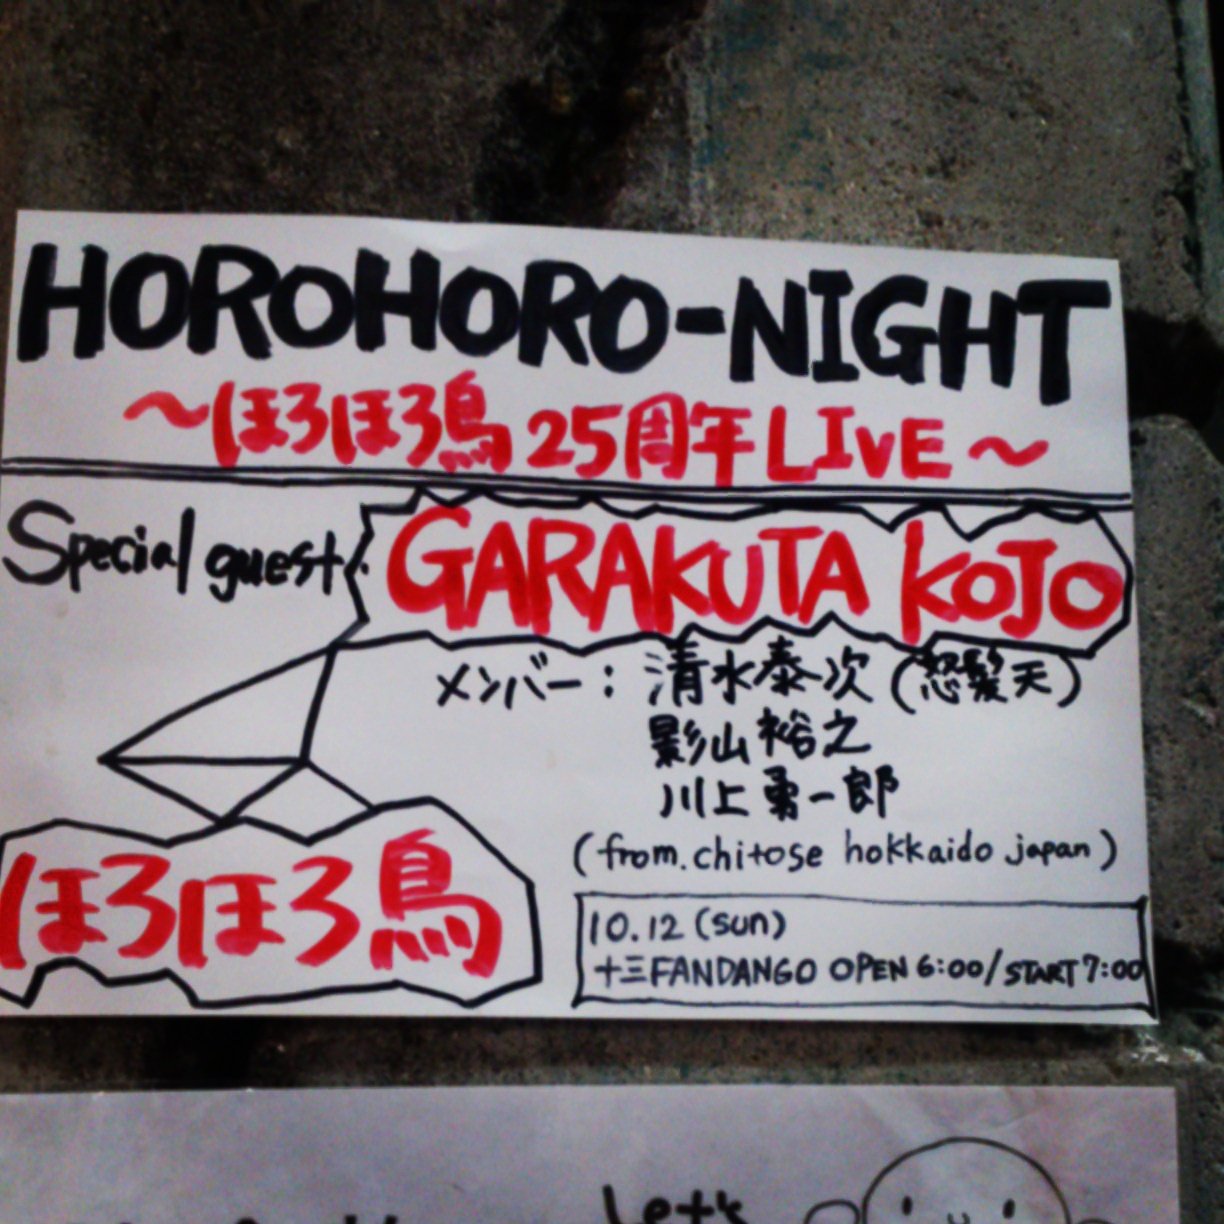 HOROHORO-NIGHT
〜ほろほろ鳥25周年LIVE〜
Special guest
GARAKUTA KOJO
メンバー：清水泰次（怒髪天）
影山裕之
川上勇一郎
(from.chitose hokkaido japan)
ほろほろ鳥
10.12 (sun)
十三FANDANGO OPEN 6:00/START 7:00
Let's